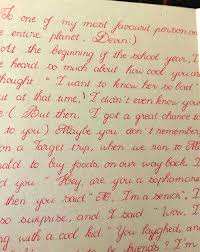 To one of my most favourist person on
e entire planet, Devin:)
At the beginning of the school year, I
e heard so much about how cool you are
thought: " I want to know her so bad "
ut at that time, I didn't even know your
:( But then, I got a great chance to
to you) Maybe you don't remember
on a Target trip, when we ran to Mc
nald to buy foods, on our way back, I
d you " Hey, are you a sophomore
then you said " I'm a senior", I
so surprise, and I said " Wow, I
ng with a cool kid" You laughed, an
be friends ? I'm